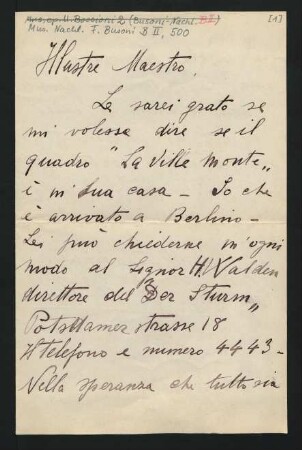 Mus. ep. U. Boccioni 2 (Busoni-Nachl. B II)
Mus. Nachl. F. Busoni B II, 500
[1]
Illustre Maestro,
Le sarei grato se
mi volesse dire se il
quadro "La Ville monte„
è in sua casa – So che
è arrivato a Berlino –
Lei può chiederne in ogni
modo al Signor H. Walden
direttore del Der Sturm„
Potsttamer strasse 18
Il telefono è numero 4443 –
Nella speranza che tutto sia